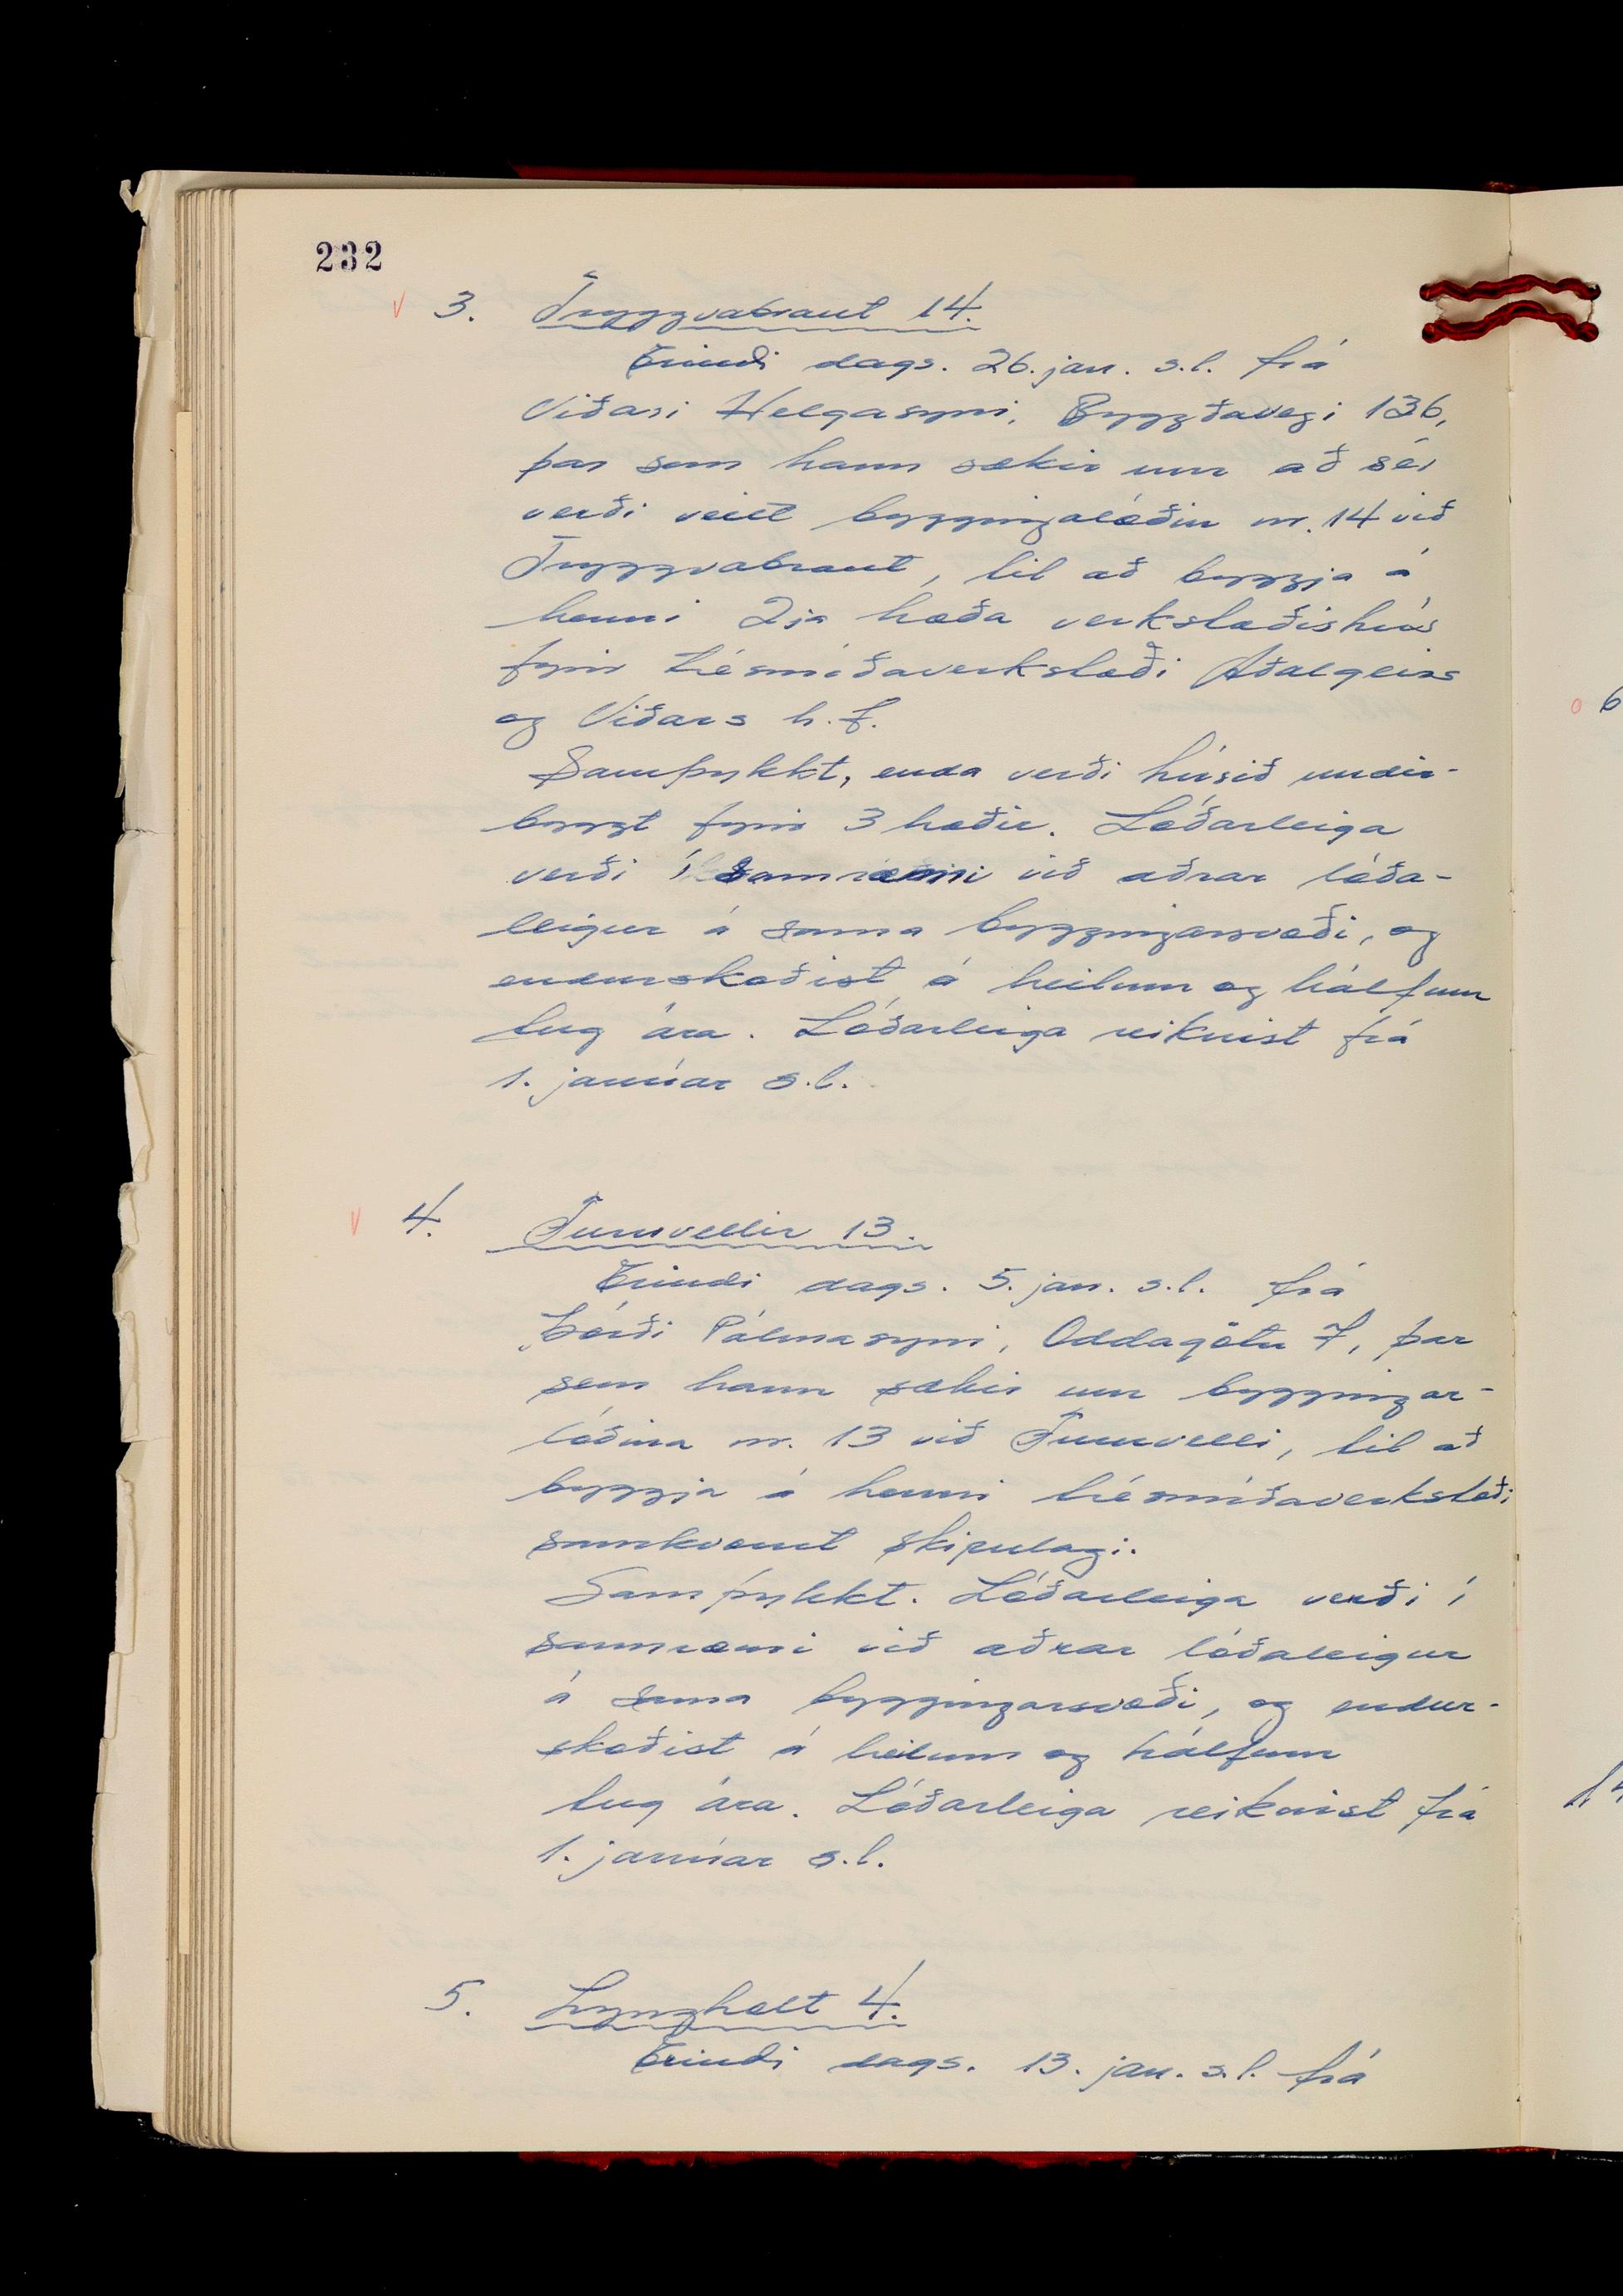 232
v 3. Tryggvabraut 14.
Erindi dags. 26. jan. s.l. frá
Viðari Helgasyni, Byggðavegi 136,
þar sem hann sækir um að sér
verði veitt byggingalóðin nr. 14 við
Tryggvabraut, til að byggja á
henni 2ja hæða verkstæðishús
fyrir trésmíðaverkstæði Aðalgeirs
og Viðars h.f.
Samþykkt, enda verði húsið undir-
byggt fyrir 3 hæðir. Lóðarleiga
verði í samræmi við aðrar lóða-
leigur á sama byggingarsvæði, og
endurskoðist á heilum og hálfum
tug ára. Lóðarleiga reiknist frá
1. janúar s.l.
v 4. Furuvellir 13.
Erindi dags. 5. jan. s.l. frá
Þórði Pálmasyni, Oddagötu 7, þar
sem hann sækir um byggingar-
lóðina nr. 13 við Furuvelli, til að
byggja á henni trésmíðaverkstæði
samkvæmt skipulagi.
Samþykkt. Lóðarleiga verði í
samræmi við aðrar lóðaleigur
á sama byggingarsvæði, og endur-
skoðist á heilum og hálfum
tug ára. Lóðarleiga reiknist frá
1. janúar s.l.
5. Lyngholt 4.
Erindi dags. 13. jan. s.l. frá
o 6